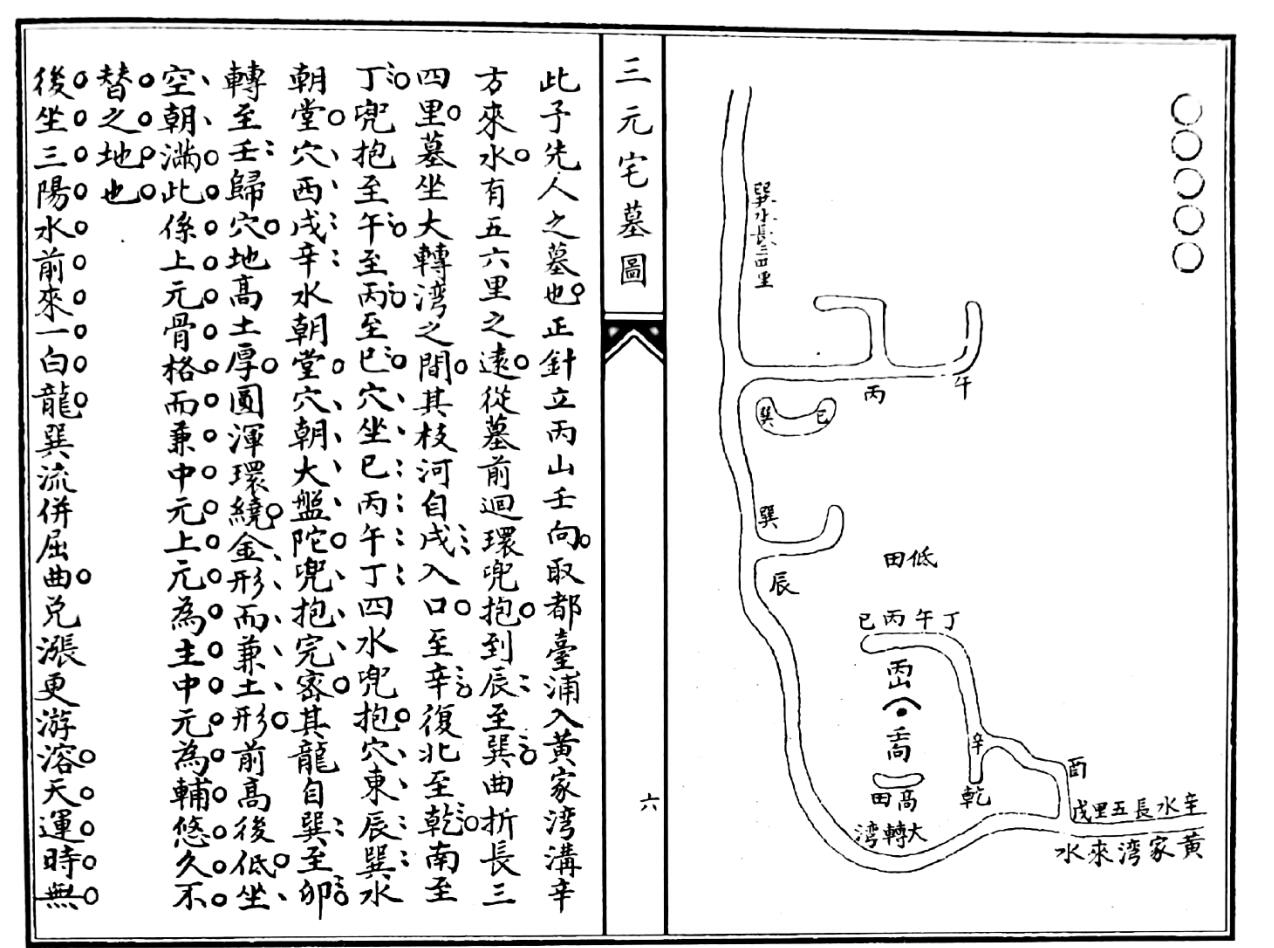 巽水長三四里
午
丙
巳
巽
巽
辰
低田
丁午丙巳
丙山
壬向
高田
大轉湾
辛
乾
酉
辛水長五里戌
黄家湾來水
三元宅墓圖
六
此子先人之墓也正針立丙山壬向取都臺浦入黄家湾溝辛
方來水有五六里之遠從墓前迴環兜抱到辰至巽曲折長三
四里墓坐大轉湾之間其枝河自戌入口至辛復北至乾南至
丁兜抱至午至丙至巳穴坐巳丙午丁四水兜抱穴東辰巽水
朝堂穴西戌辛水朝堂穴朝大盤陀兜抱完密其龍自巽至卯
轉至壬歸穴地髙土厚圓渾環繞金形而兼土形前高後低坐
空朝滿此係上元骨格而兼中元上元為主中元為輔悠久不
替之地也
後坐三陽水前來一白龍巽流併屈曲兑漲更游溶天運時無